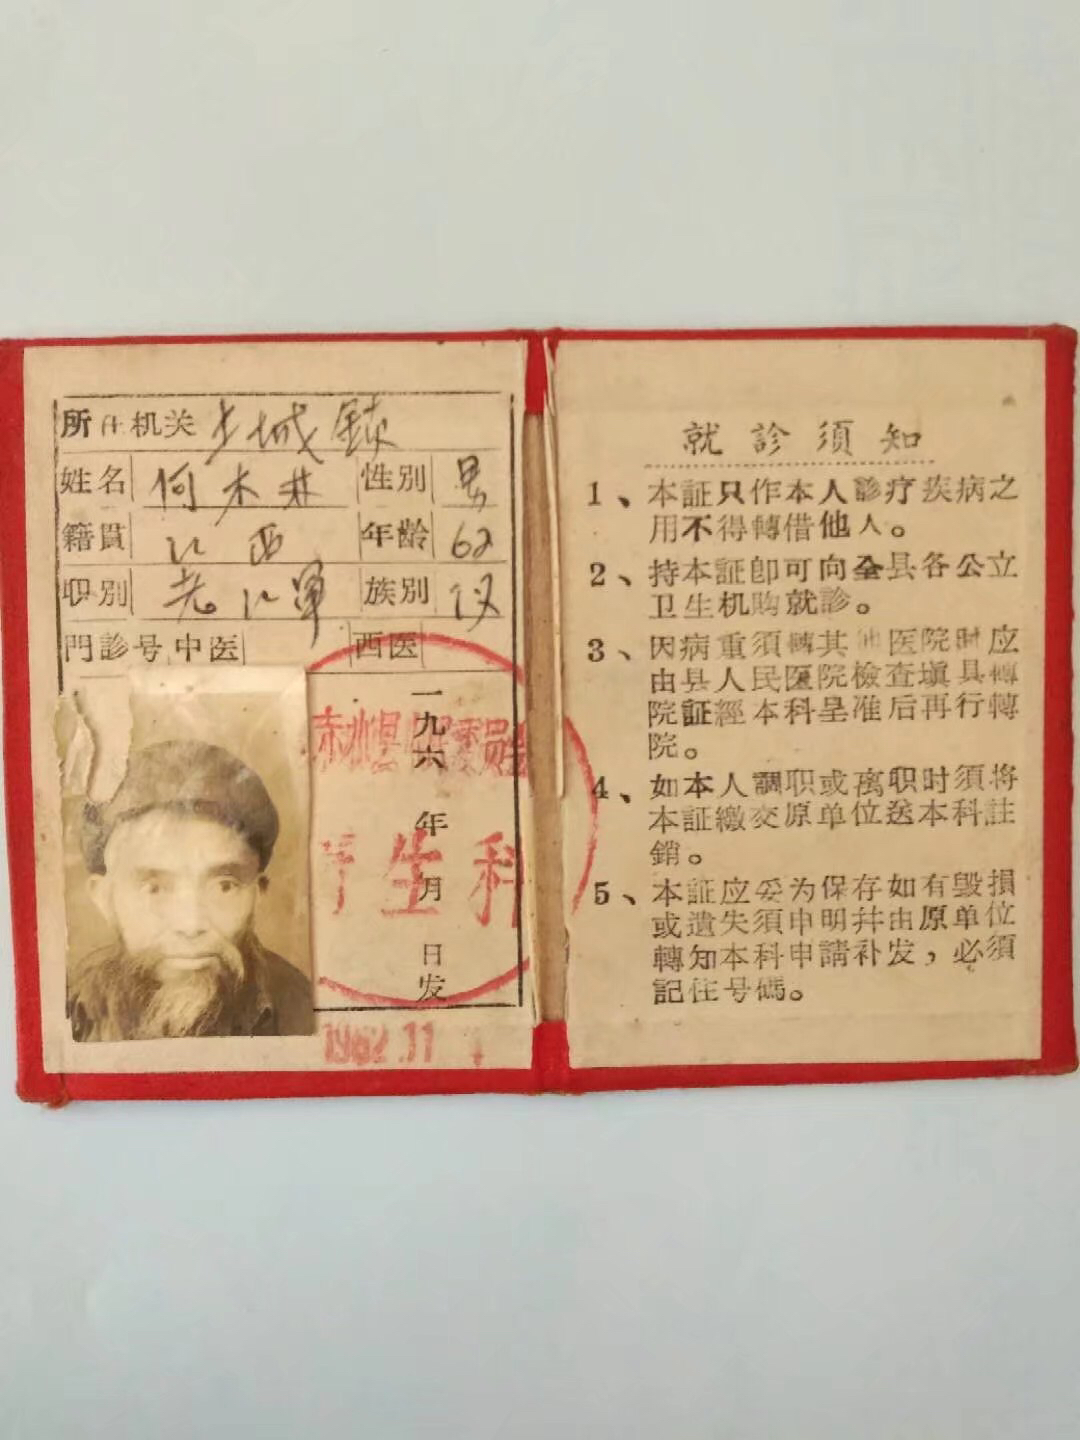 所在机关 土城鎮
姓名 何木林 性别 男
籍貫 江西 年龄 62
职别 老红軍 族别 汉
門診号 中医 西医
一九六 年 月 日发
赤水县 委員会
卫生科
1962.11
就診須知
1、本証只作本人診疗疾病之
用不得轉借他人。
2、持本証卽可向全县各公立
卫生机购就診。
3、因病重須轉其他医院时应
由县人民医院檢查塡具轉
院証經本科呈准后再行轉
院。
4、如本人調职或离职时須将
本証繳交原单位送本科註
銷。
5、本証应妥为保存如有毁損
或遺失須申明幷由原单位
轉知本科申請补发，必須
記住号碼。